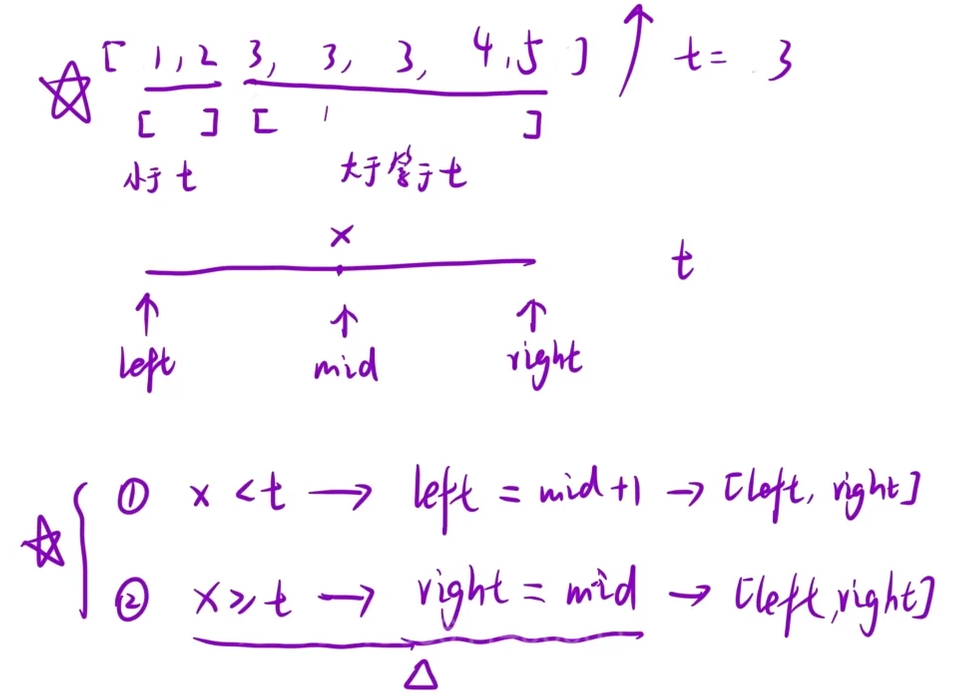 [ 1, 2 3, 3, 3, 4, 5 ] t = 3
[ ] [ ]
小于 t 大于等于 t
x
t
left mid right
① x < t → left = mid+1 → [left, right]
② x ≥ t → right = mid → [left, right]